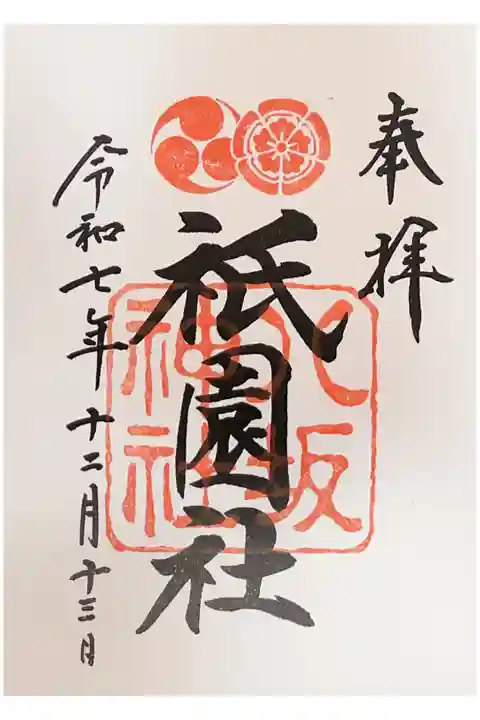 奉拝
祇園社
八坂神社
令和七年十二月十三日